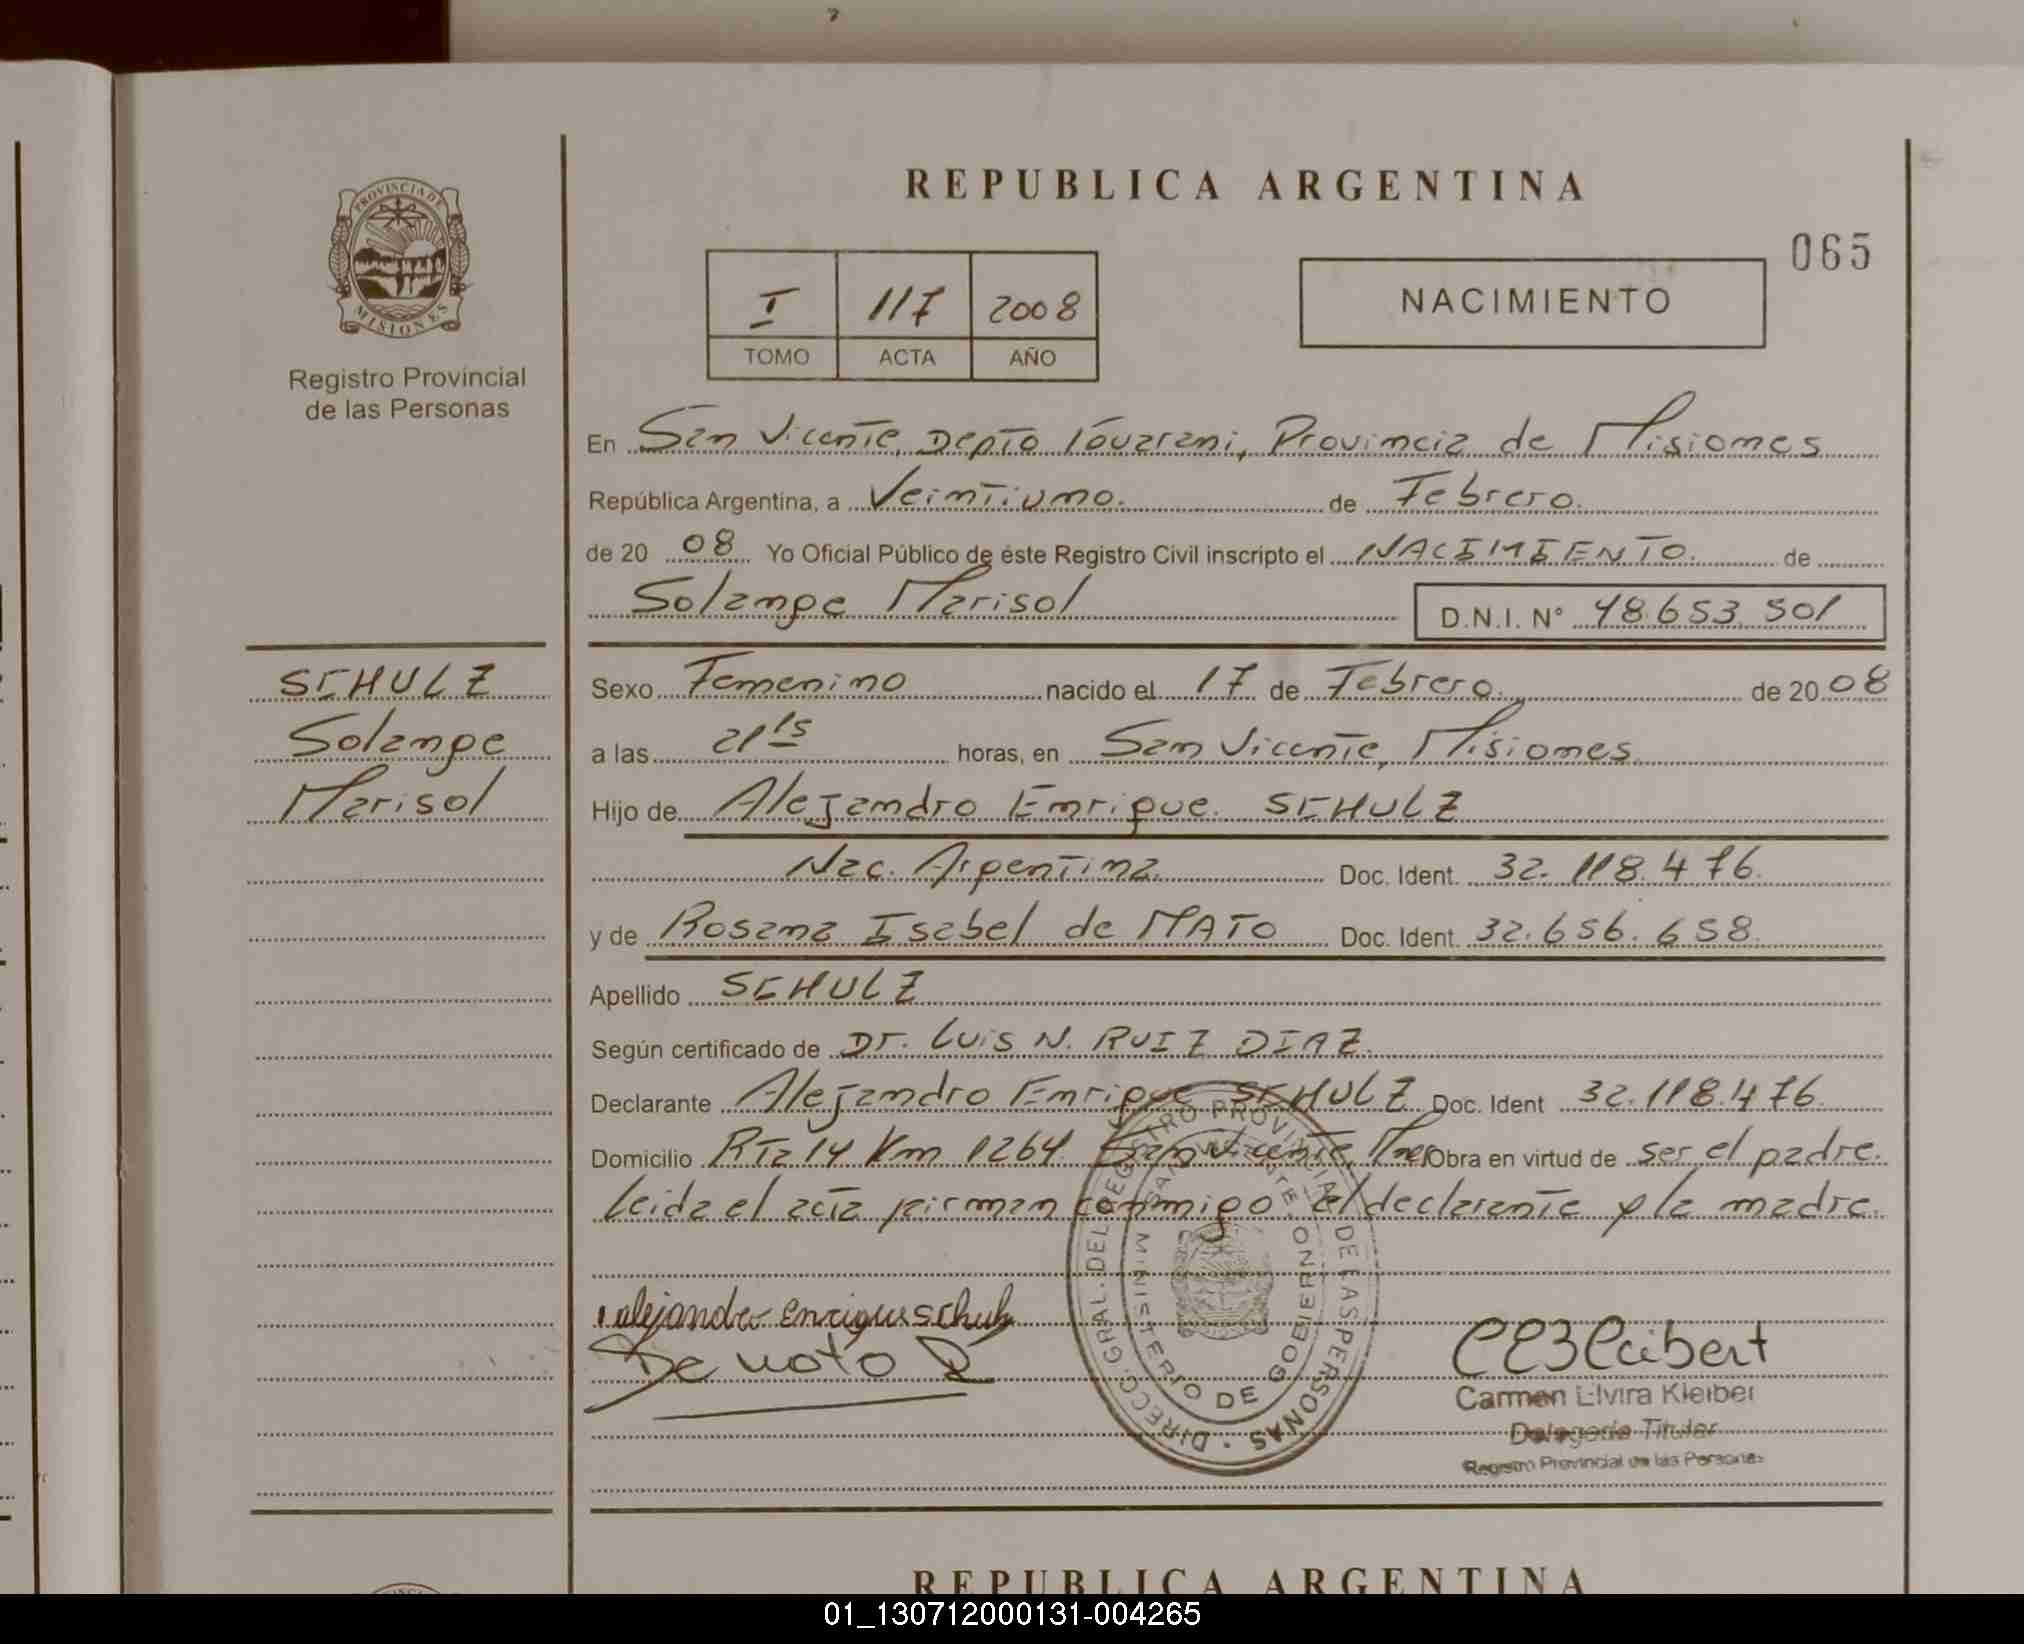 REPUBLICA ARGENTINA
065
PROVINCIA DE
MISIONES
Registro Provincial
de las Personas
I 117 2008
TOMO ACTA AÑO
NACIMIENTO
En San Vicente, Depto Guarani, Provincia de Misiones
República Argentina, a Veintiuno. de Febrero.
de 20 08 Yo Oficial Público de éste Registro Civil inscripto el NACIMIENTO. de
Solange Marisol D.N.I. N° 48.653.501
SCHULZ
Solange
Marisol
Sexo Femenino nacido el 17 de Febrero. de 20 08
a las 21 15 horas, en San Vicente, Misiones.
Hijo de Alejandro Enrique. SCHULZ
Nac. Argentina. Doc. Ident. 32.118.476.
y de Rosana Isabel de MATO Doc. Ident. 32.656.658.
Apellido SCHULZ
Según certificado de Dr. Luis N. RUIZ DIAZ.
Declarante Alejandro Enrique SCHULZ Doc. Ident 32.118.476.
Domicilio Rta 14 Km 1264. San Vicente, Mnes Obra en virtud de ser el padre.
Leida el acta firman conmigo el declarante y la madre.
alejandro enrique schulz
De Mato R
DIRECC. GRAL. DEL REGISTRO PROVINCIAL DE LAS PERSONAS
SAN VICENTE
MINISTERIO DE GOBIERNO
Carmen Elvira Kleiber
Delegada Titular
Registro Provincial de las Personas
REPUBLICA ARGENTINA
01_130712000131-004265